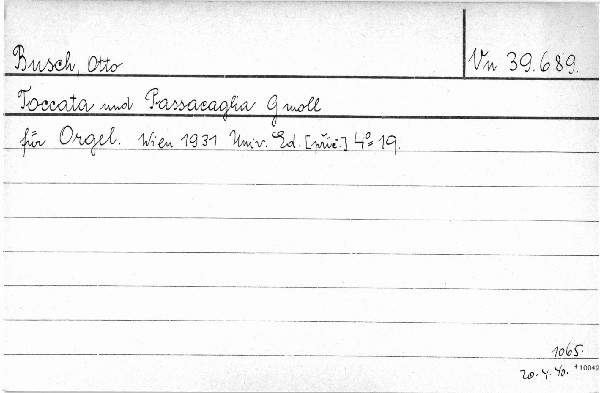 Busch, Otto Vn 39.689.
Toccata und Passacaglia G moll
für Orgel. Wien 1931 Univ. Ed. [příč.] 4º 19.
1065.
20.4.40. 10042